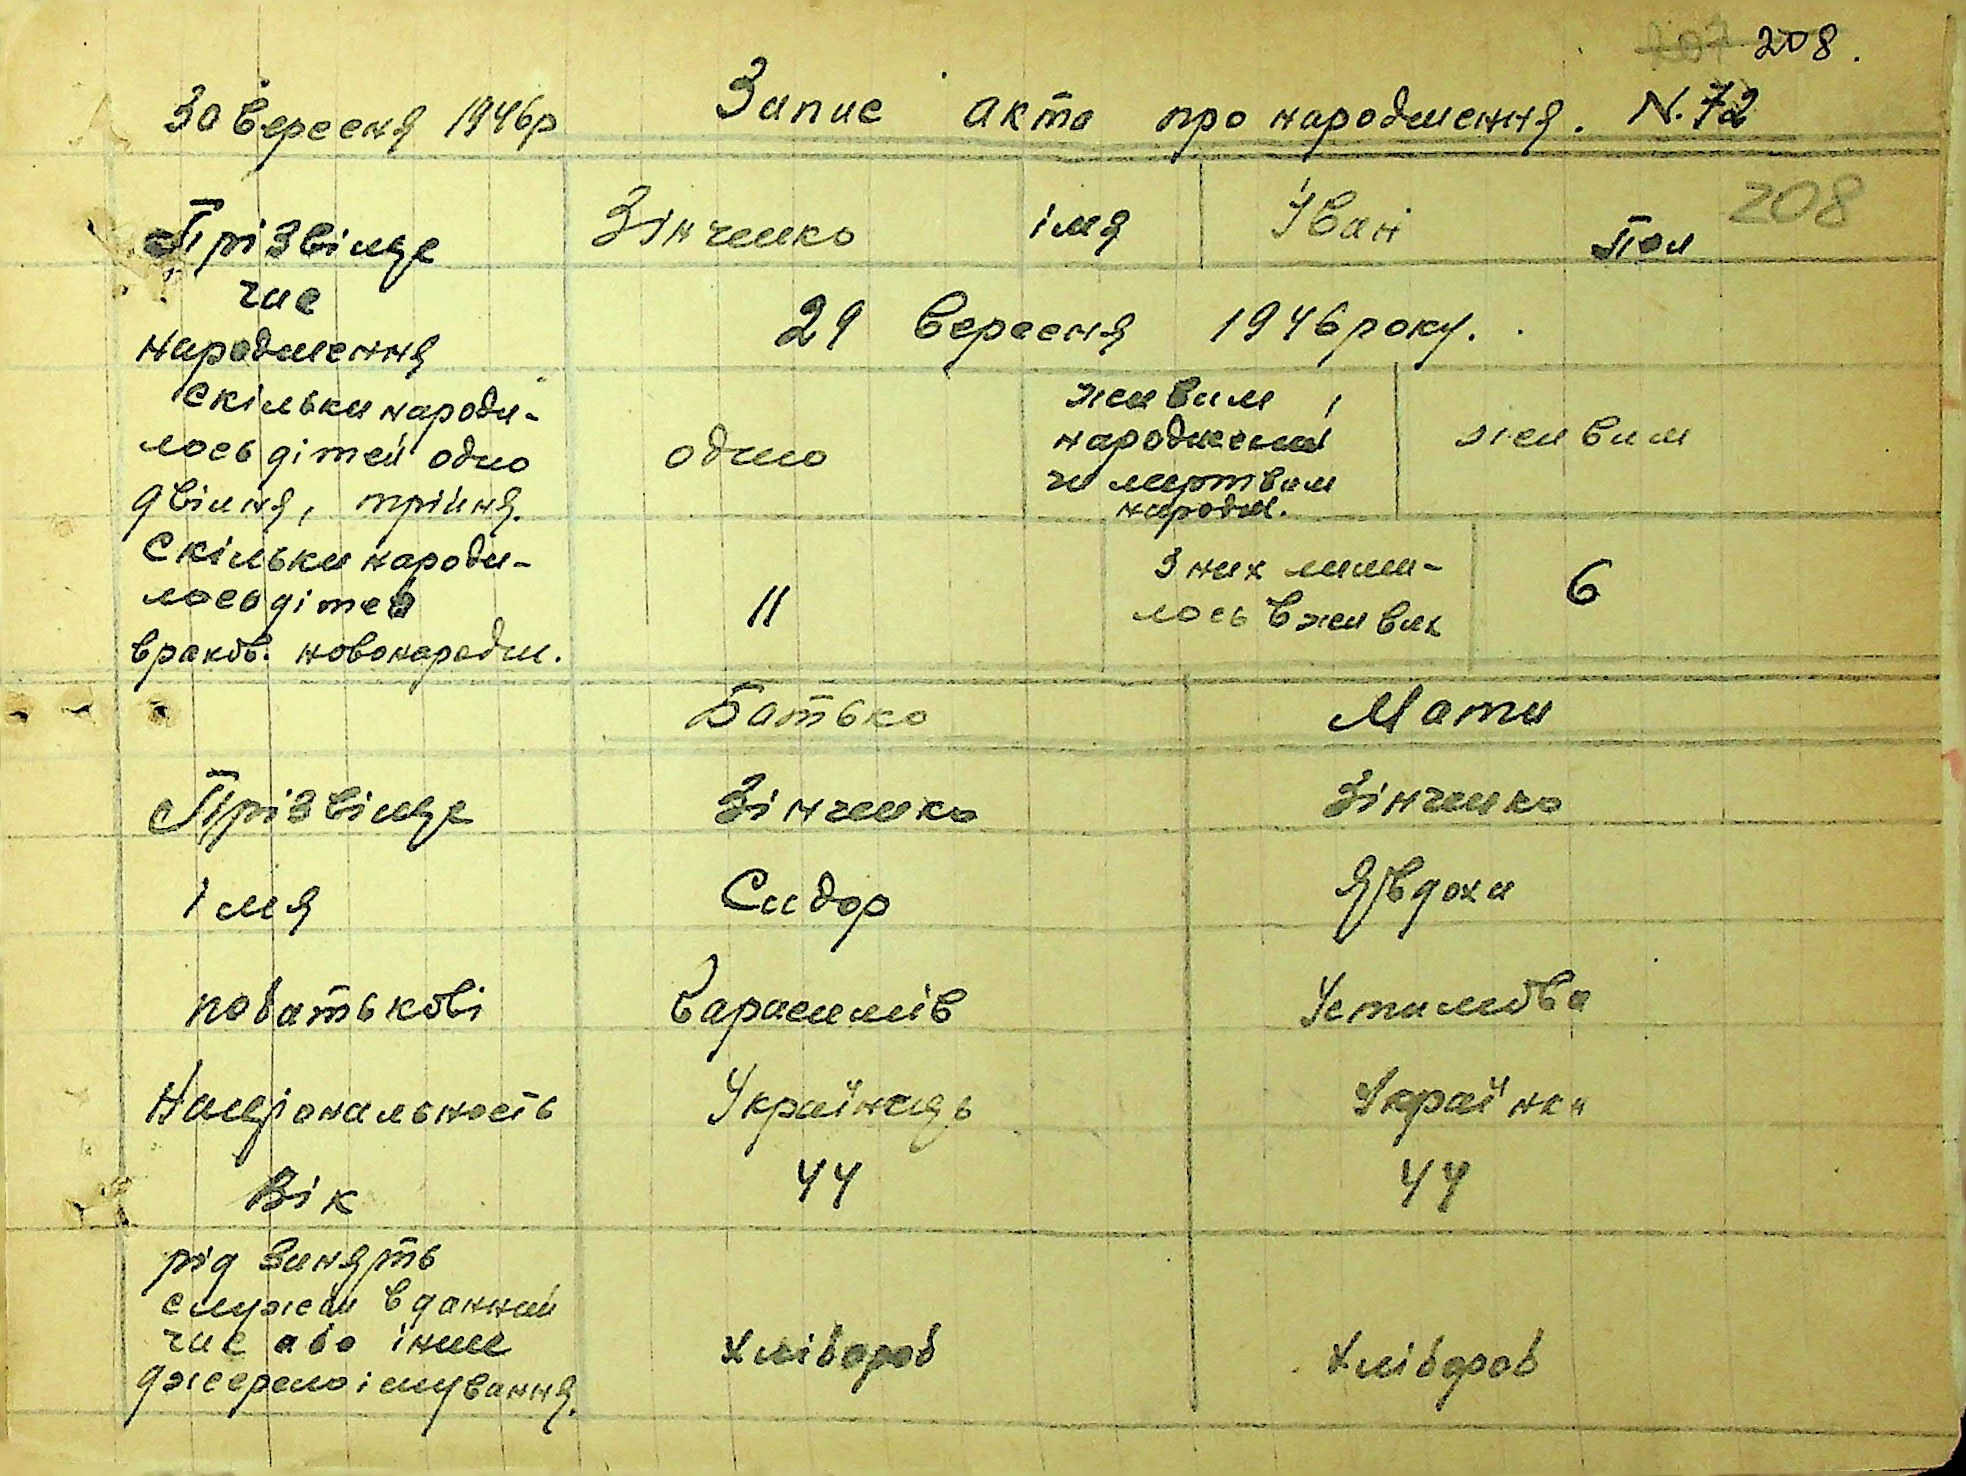 207 208.
30 вересня 1946р Запис акта про народження. N.72
208
Прізвіще Зінченко імя Іван Пол
час
народження 29 вересня 1946 року.
Скільки народи-
лось дітей одно
двійня, трійня. одно живим
народжений
чи мертвим
народж. живим
Скільки народи-
лось дітей
враков. новонародж. 11 З них лиши-
лось в живих 6
Батько Мати
Прізвіще Зінченко Зінченко
Імя Сидор Явдоха
побатькові Гарасимів Устимова
Національность Українець Українка
Вік 44 44
рід занять
служби в данний
час або інше
джерело існування. хлібороб хлібороб